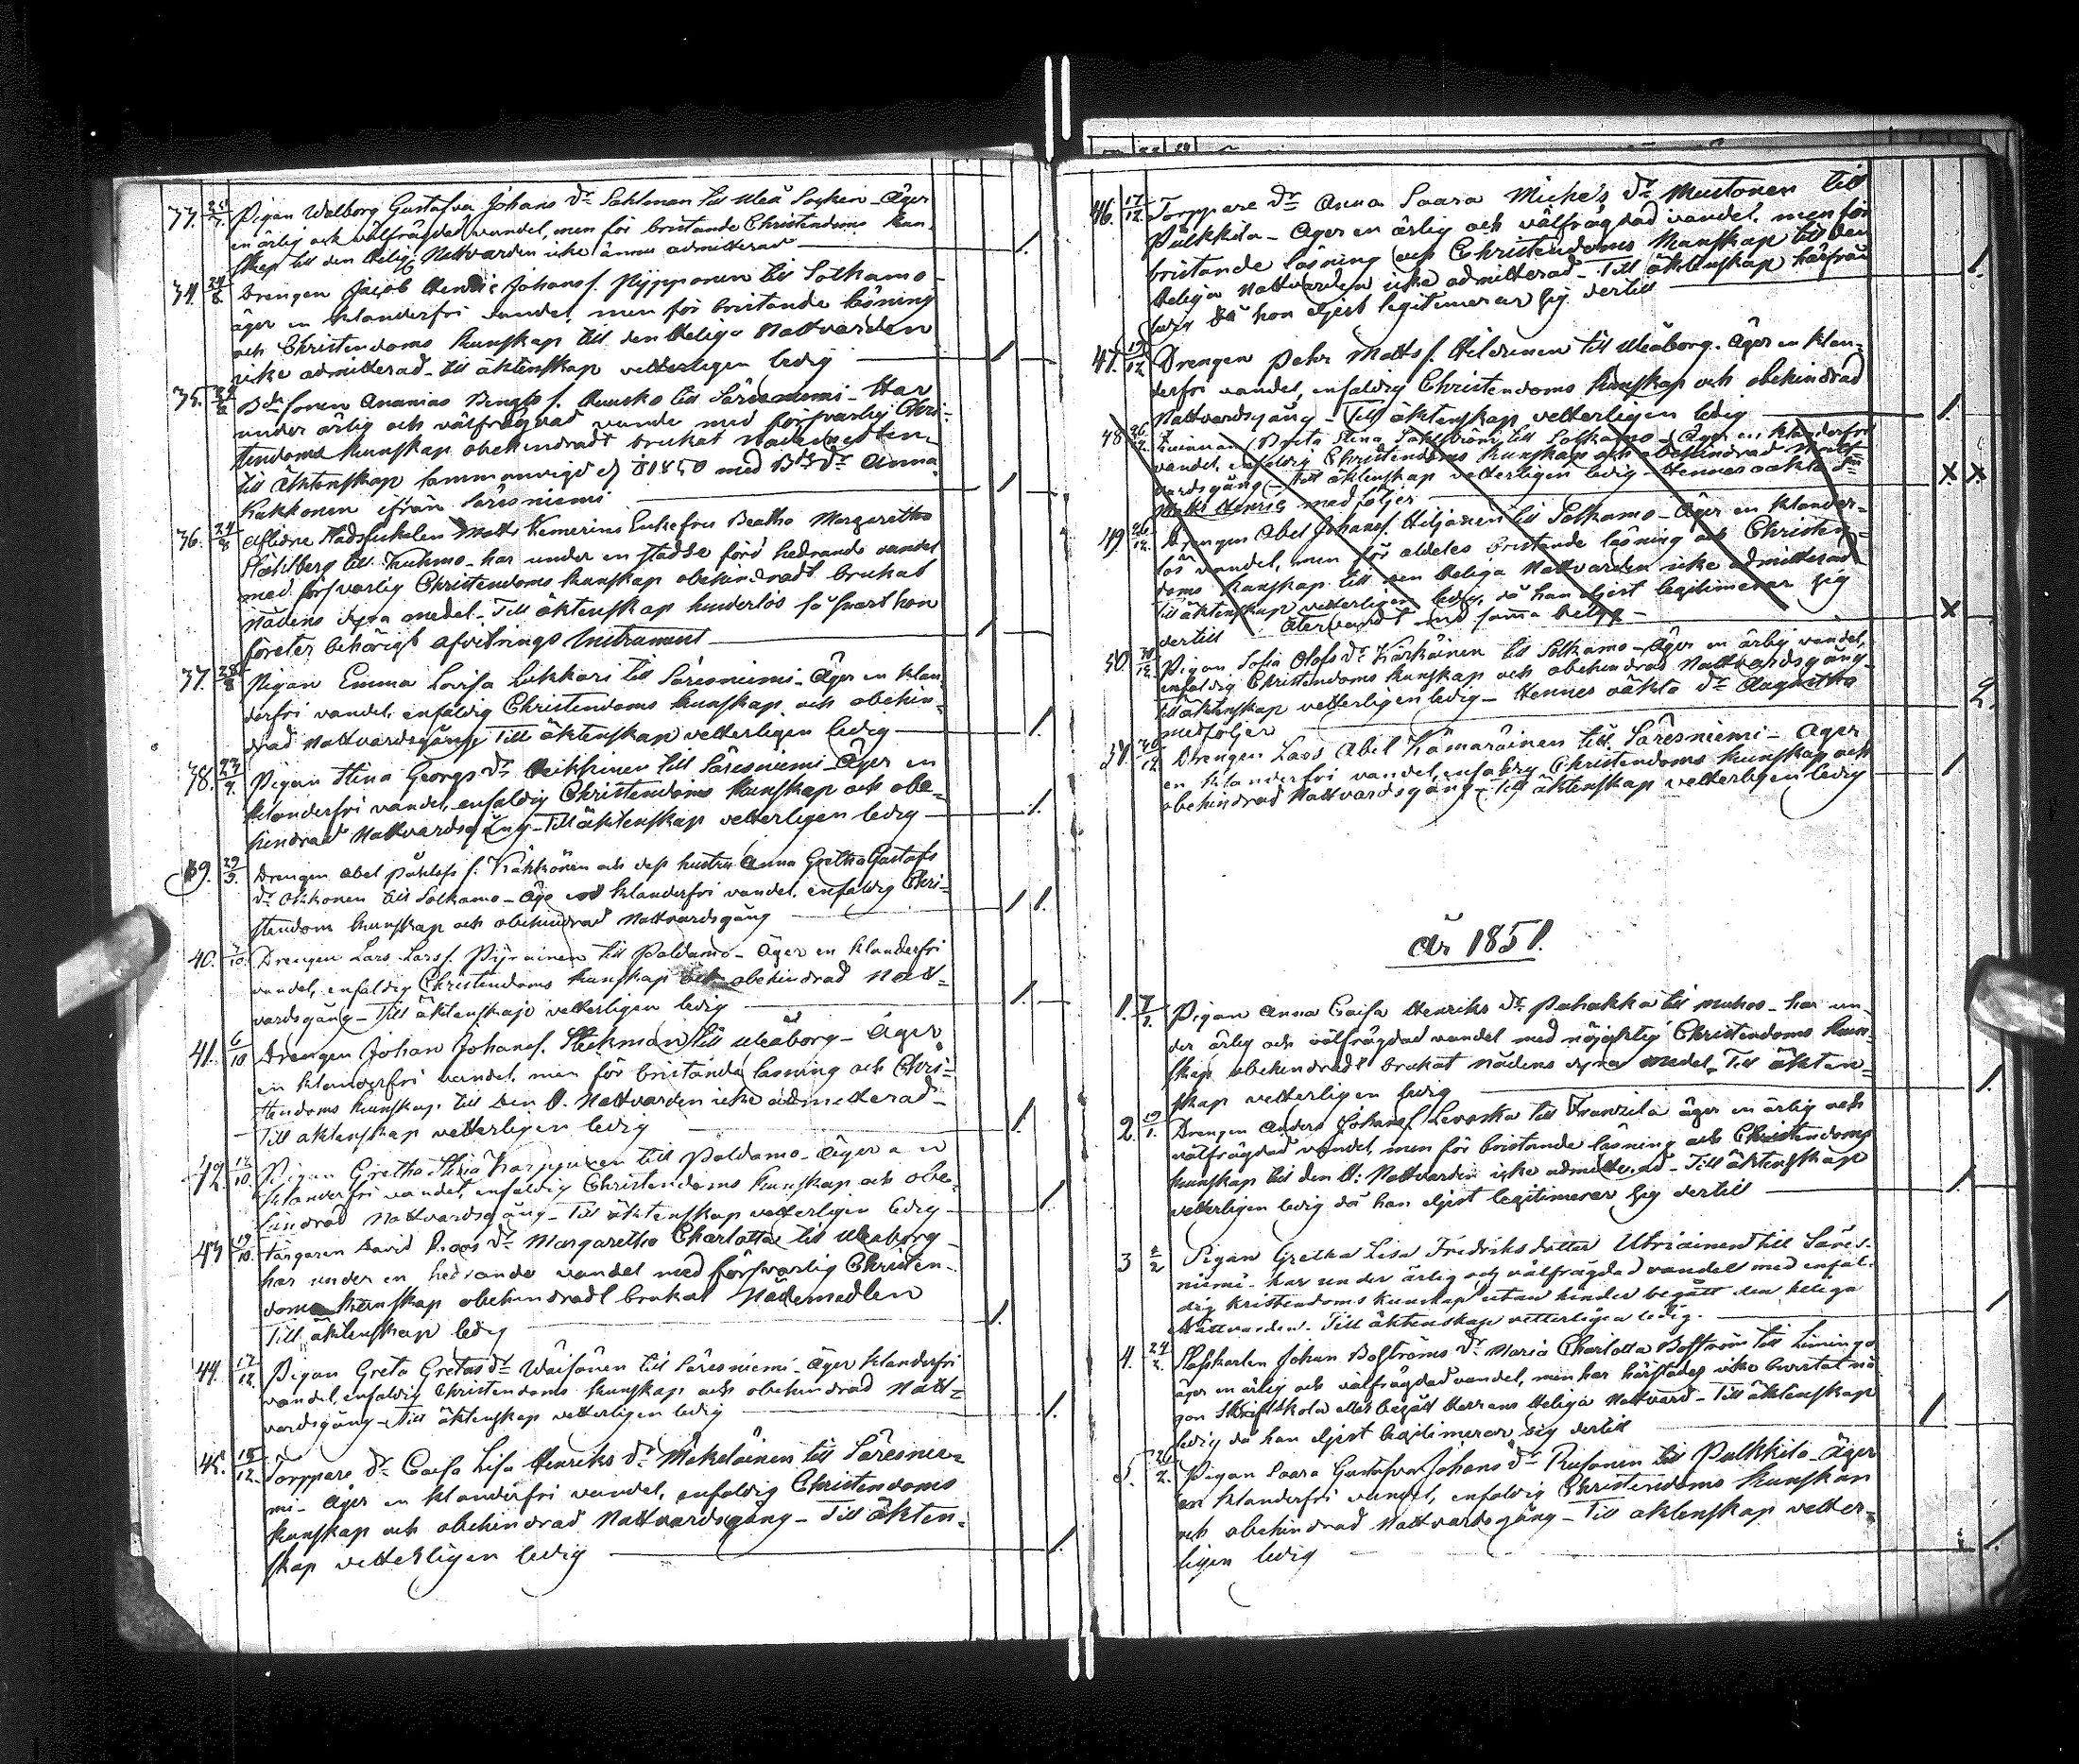 33. 25/7. Pigan Walborg Gustafva Johans dr Sahlman till Uleå Socken - Äger
en ärlig och välfrägdad vandel, men för bristande Christendoms kun-
skap till den Helig. Nattvarden icke ännu admitterad
34. 24/8. Drengen Jacob Henric Johans s. Pypponen till Sotkamo
äger en klanderfri vandel, men för bristande läsning
och Christendoms kunskap till den Heliga Nattvarden
icke admitterad - till äktenskap vetterligen ledig
35. Bdesonen Ananias Bengts s. Kuusko till Säresniemi - Har
under ärlig och välfrägdad vandel med försvarlig Chri-
stendoms kunskap obehindradt brukat nådemedlen
till äktenskap sammanvigd 1850 med Bds dr Anna
Kakkonen ifrån Säresniemi
36. 24/8 Aflidne Stadsfiskalen Matts Kemerins Enkefru Beatha Margaretha
Ståhlberg till Kuhmo - har under en städse förd hedrande vandel
med försvarlig Christendoms kunskap obehindradt brukat
nådens dyra medel - Till äktenskap hinderlös så snart hon
företer behörigt afvittrings Instrument
37. 28/8 Pigan Emma Lovisa Lukkari till Säresniemi - Äger en klan-
derfri vandel, enfaldig Christendoms kunskap och obehin-
drad Nattvardsgång Till äktenskap vetterligen ledig
38. 23/9. Pigan Stina Georgs dr Heikkinen till Säresniemi - Äger en
klanderfri vandel, enfaldig Christendoms kunskap och obe-
hindrad Nattvardsgång - Till äktenskap vetterligen ledig
39. 29/9. Drengen Abel Påhls s. Kähkönen och dess hustru Anna Gretha Gustafs
dr Okkonen till Sotkamo - Äga klanderfri vandel, enfaldig Chri-
stendoms kunskap och obehindrad Nattvardsgång
40. Drengen Lars Lars s. Pyrainen till Paldamo - Äger en klanderfri
vandel, enfaldig Christendoms kunskap och obehindrad Natt-
vardsgång - Till äktenskap vetterligen ledig
41. 6/10 Drengen Johan Johans s. Steckman till Uleåborg - Äger
en klanderfri vandel, men för bristande läsning och Chri-
stendoms kunskap till Den H. Nattvarden icke admitterad -
Till äktenskap vetterligen ledig
42. 10. Pigan Gretha Stina Karppinen till Paldamo - Äger en
klanderfri vandel, enfaldig Christendoms kunskap och obe-
hindrad Nattvardsgång - Till äktenskap vetterligen ledig
43 19/10. Färgaren David Roos dr Margaretha Charlotta till Uleåborg -
har under en hedrande vandel med försvarlig Christen-
doms kunskap obehindradt brukat Nådemedlen
Till äktenskap ledig
44. 12. Pigan Greta Gretas dr Waisänen till Säresniemi - Äger klanderfri
vandel, enfaldig Christendoms kunskap och obehindrad Natt-
vardsgång - Till äktenskap vetterligen ledig
45. 15/12. Torppare dr Caisa Lisa Henriks dr Mäkeläinen till Säresnie-
mi - Äger en klanderfri vandel, enfaldig Christendoms
kunskap och obehindrad Nattvardsgång - Till äkten-
skap vetterligen ledig
46. 17/12. Torppare dr Anna Saara Michels dr Mustonen till
Pulkkila - Äger en ärlig och välfrägdad vandel, men för
bristande läsning och Christendoms kunskap till den
Heliga Nattvarden icke admitterad - Till äktenskap härifrån
ledig då hon eljest legitimerar sig dertill
47. 19/12. Drengen Pehr Matts s. Hildunen till Uleåborg. Äger en klan-
derfri vandel, enfaldig Christendoms kunskap och obehindrad
Nattvardsgång - Till äktenskap vetterligen ledig
48 26 Brita Stina Fahlström till Sotkamo - Äger en klanderfri
vandel, enfaldig Christendoms kunskap och obehindrad Natt-
vardsgång - Till äktenskap vetterligen ledig - Hennes oäkta
Matts Henric medföljer
49 26/12. Drengen Abel Johans s. Hiljanen till Sotkamo - Äger en klander-
lös vandel, men för aldeles bristande läsning och Christen-
doms kunskap till den Heliga Nattvarden icke admitterad
Till äktenskap vetterligen ledig, då han eljest legitimerar sig
dertill Återvändt med samma betyg -
50. 30/12. Pigan Sofia Olofs dr Kärkäinen till Sotkamo - Äger en ärlig vandel,
enfaldig Christendoms kunskap och obehindrad Nattvardsgång
till äktenskap vetterligen ledig - Hennes oäkta dr Augustha
medföljer
51. 30/12 Drengen Lars Abel Kämäräinen till Säresniemi - Äger
en klanderfri vandel, enfaldig Christendoms kunskap och
obehindrad Nattvardsgång - Till äktenskap vetterligen ledig
År 1851.
1. 7/1. Pigan Anna Caisa Henriks dr Pahakka till Muhos - har un-
der ärlig och välfrägdad vandel med nöjaktig Christendoms kun-
skap obehindradt brukat nådens dyra medel - Till äkten-
skap vetterligen ledig
2. 19/1. Drengen Anders Johans s. Levaska till Frantzila äger en ärlig och
välfrägdad vandel, men för bristande läsning och Christendoms
kunskap till den H: Nattvarden icke admitterad - Till äktenskap
vetterligen ledig då han eljest legitimerar sig dertill
3 2/2 Pigan Gretha Lisa Fredriksdotter Utriainen till Säres-
niemi - har under ärlig och välfrägdad vandel med enfal-
dig kristendoms kunskap utan hinder begått den heliga
Nattvarden. Till äktenskap vetterligen ledig.
4. 24/2. Johan Boströms dr Maria Charlotta Boström till Limingo
äger en ärlig och välfrägdad vandel, men har härstädes icke bevistat nå-
gon Skriftskola eller begått Herrans Heliga Nattvard - Till äktenskap
ledig då hon eljest legitimerar sig dertill
5. 26/2. Pigan Saara Gustafva Johans dr Rusanen till Pulkkila - Äger
en klanderfri vandel, enfaldig Christendoms kunskap
och obehindrad Nattvardsgång - Till äktenskap vetter-
ligen ledig